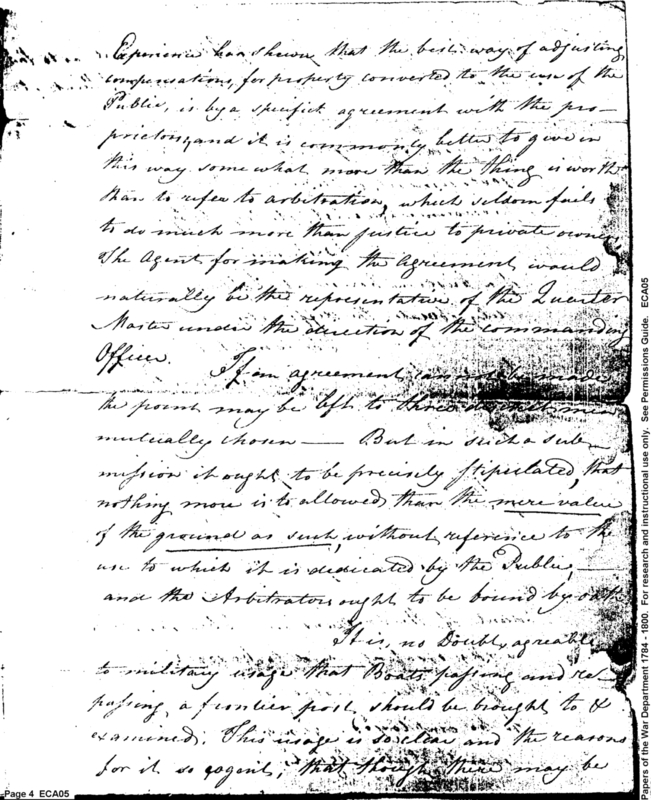 Experience has shewn that the best way of adjusting
compensations, for property converted to the use of the
Public, is by a specifick agreement with the pro-
prietors, and it is commonly better to give in
this way somewhat more than the thing is worth
than to refer to arbitration, which seldom fails
to do much more than justice to private owners
The Agent for making the Agreement would
naturally be the representative of the Quarter
Master under the direction of the commanding
Officer. If an agreement can not be made
the point may be left to three men
mutually chosen — But in such a sub-
mission it ought to be precisely stipulated, that
nothing more is to allowed than the mere value
of the ground as such, without reference to the
use to which it is dedicated by the Public, —
and the Arbitrators ought to be bound by oath
It is, no Doubt, agreable
to military usage that Boats passing and re-
passing a frontier post should be brought to &
examined. This usage is so clear and the reasons
for it so cogent, that though there may be
Page 4 ECA05
Papers of the War Department 1784 - 1800. For research and instructional use only. See Permissions Guide. ECA05